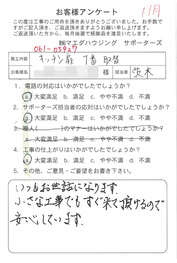 お客様アンケート
6/1月
この度は工事のご用命を頂きありがとうございました。お手数で
すがご記入頂き、ご返送頂きますようお願いいたします。
ご返送頂いた方から、毎月抽選で感謝品を進呈いたします。
㈱マエダハウジング サポーターズ
061-05927
工事内容 キッチン扉 丁番 取替
お客様名 様 担当者 茨木
1. 電話の対応はいかがでしたでしょうか?
大変満足 b. 満足 c. やや不満 d. 不満
2. サポーターズ担当者の応対はいかがでしたでしょうか?
大変満足 b. 満足 c. やや不満 d. 不満
3. 職人( )のマナーはいかがでしたでしょうか?
a. 大変満足 b. 満足 c. やや不満 d. 不満
4. 工事の仕上がりはいかがでしたでしょうか?
大変満足 b. 満足 c. やや不満 d. 不満
5. その他、ご意見・ご要望をお書き下さい。
いつもお世話になります。
小さな工事でもすぐ来て頂けるので
安心しています。